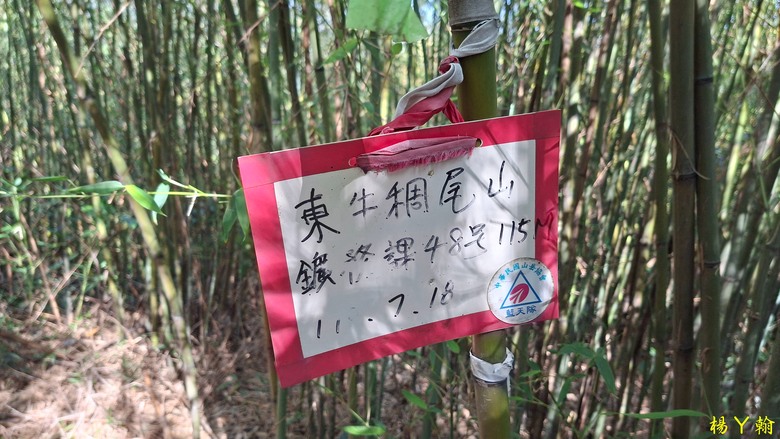 東牛稠尾山
鑛務課48号115M
11.7.18
中華民国山岳協会
藍天隊
楊丫翰